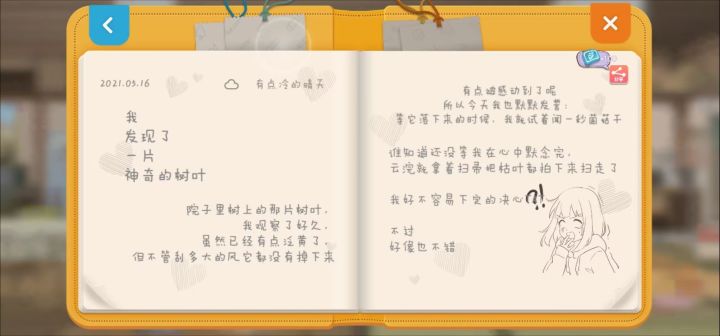 2021.05.16
有点冷的晴天
我
发现了
一片
神奇的树叶
院子里树上的那片树叶，
我观察了好久，
虽然已经有点泛黄了，
但不管刮多大的风它都没有掉下来
有点被感动到了呢
所以今天我也默默发誓：
等它落下来的时候，我就试着闻一秒菌菇干
谁知道还没等我在心中默念完，
云浣就拿着扫帚把枯叶都拍下来扫走了
我好不容易下定的决心
?!
不过
好像也不错
分享